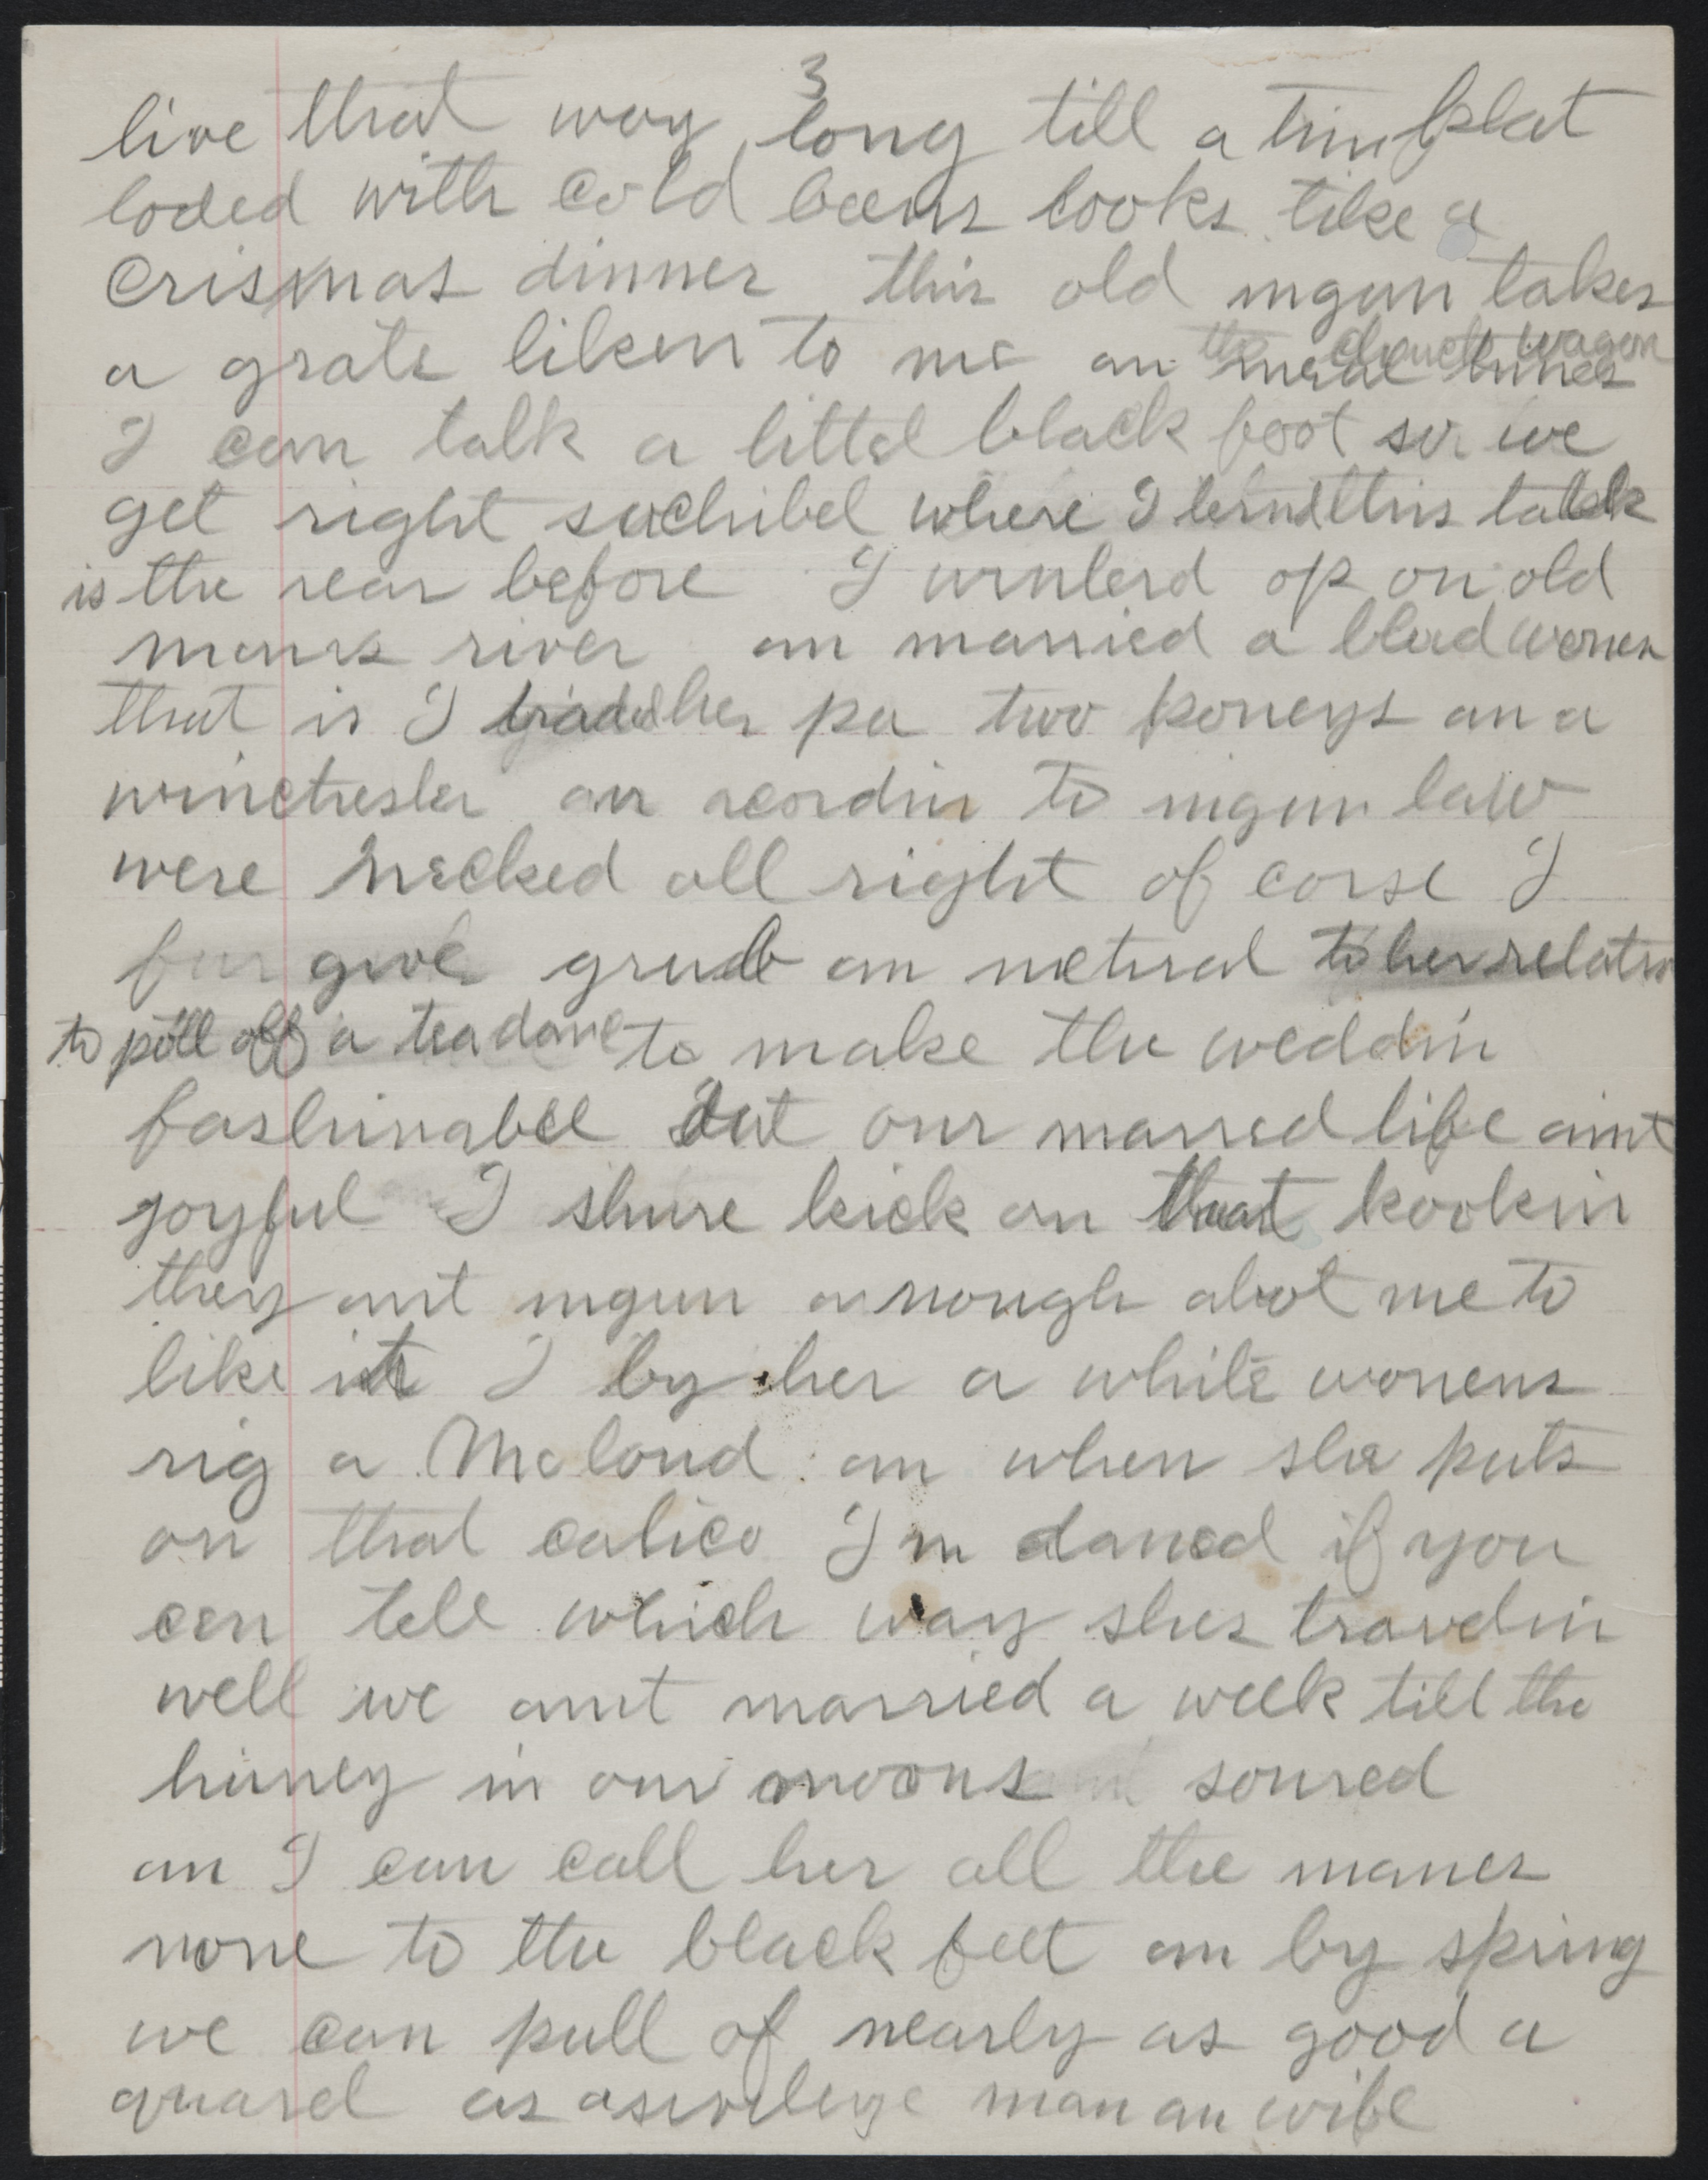 3
live that way long till a tin plat
loded with cold beens looks like a
Crismas dinner this old ingun takes
a grate liken to me an the chuck wagon
I can talk a littel black foot so we
get right sochibel where I lernd this talk
is the year before I winterd op on old
mans river an married a blud women
that is I traded her pa two poneys an a
winchester an acordin to ingun law
were necked all right of corse I
give grub an meturel to her relatio
to poll off a tea dance to make the weddin
fashinabel but our marred life aint
joyful I shure kick on that kookin
they aint ingun anough abot me to
like it I by her a white womens
rig a Mcloud an when she puts
on that calico I'm damed if you
cen tell which way shes travelin
well we aint married a week till the
huney in our moons soured
an I can call her all the manes
none to the black feet an by spring
we can pull of nearly as good a
quarel as a sivelize man an wife